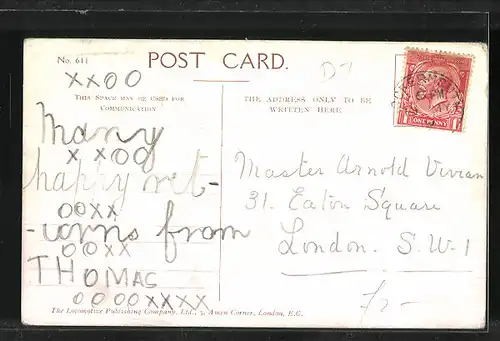 No. 611
POST CARD.
xxoo
THIS SPACE MAY BE USED FOR
COMMUNICATION
THE ADDRESS ONLY TO BE
WRITTEN HERE
ONE PENNY
Many
x xoo
happy ret-
ooxx
-urns from
ooxx
THOMAS
ooooxxxx
Master Arnold Vivian
31. Eaton Square
London. S.W.1
The Locomotive Publishing Company, Ltd., 3, Amen Corner, London, E.C.